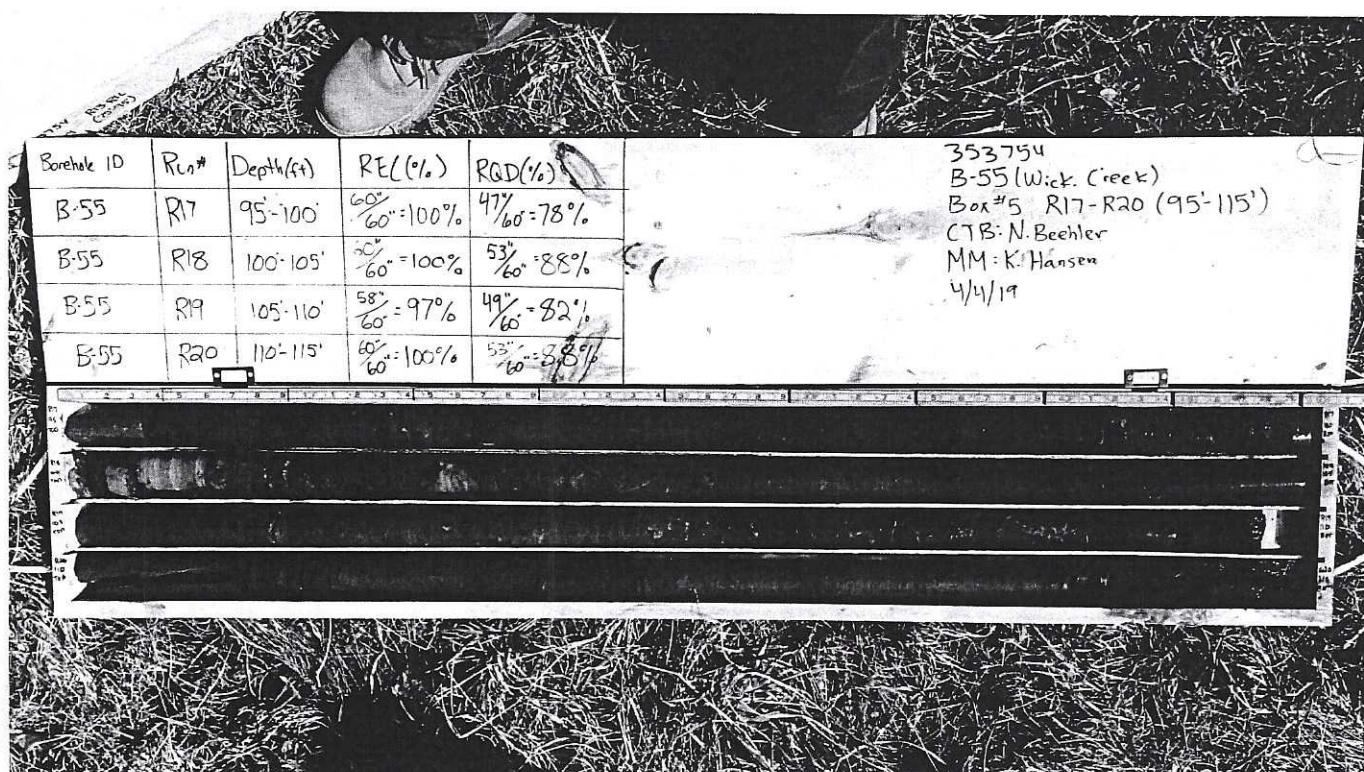 Borehole ID Run# Depth(ft) REC(%) RQD(%)
B-55 R17 95'-100' 60"/60"=100% 47"/60"=78%
B-55 R18 100'-105' 60"/60"=100% 53"/60"=88%
B-55 R19 105'-110' 58"/60"=97% 49"/60"=82%
B-55 R20 110'-115' 60"/60"=100% 53"/60"=88%
353754
B-55 (Wick. Creek)
Box #5 R17-R20 (95'-115')
CTB: N. Beehler
MM: K. Hansen
4/4/19